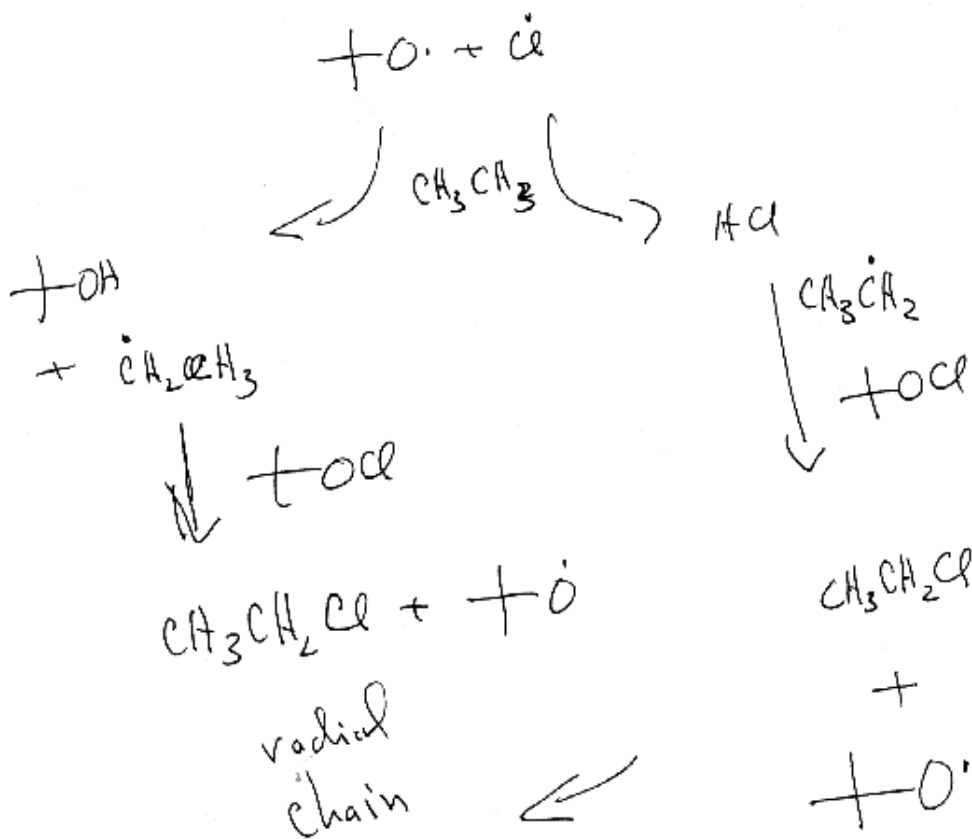 O· + Ċl
CH₃CH₃
HCl
OH
CH₃ĊH₂
+ ĊH₂CH₃
OCl
OCl
CH₃CH₂Cl + Ȯ
CH₃CH₂Cl
+
radical
chain
O·